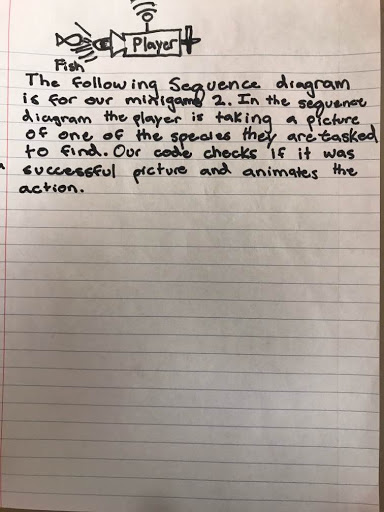 Player
Fish
The following Sequence diagram
is for our minigame 2. In the sequence
diagram the player is taking a picture
of one of the species they are tasked
to find. Our code checks if it was
successful picture and animates the
action.